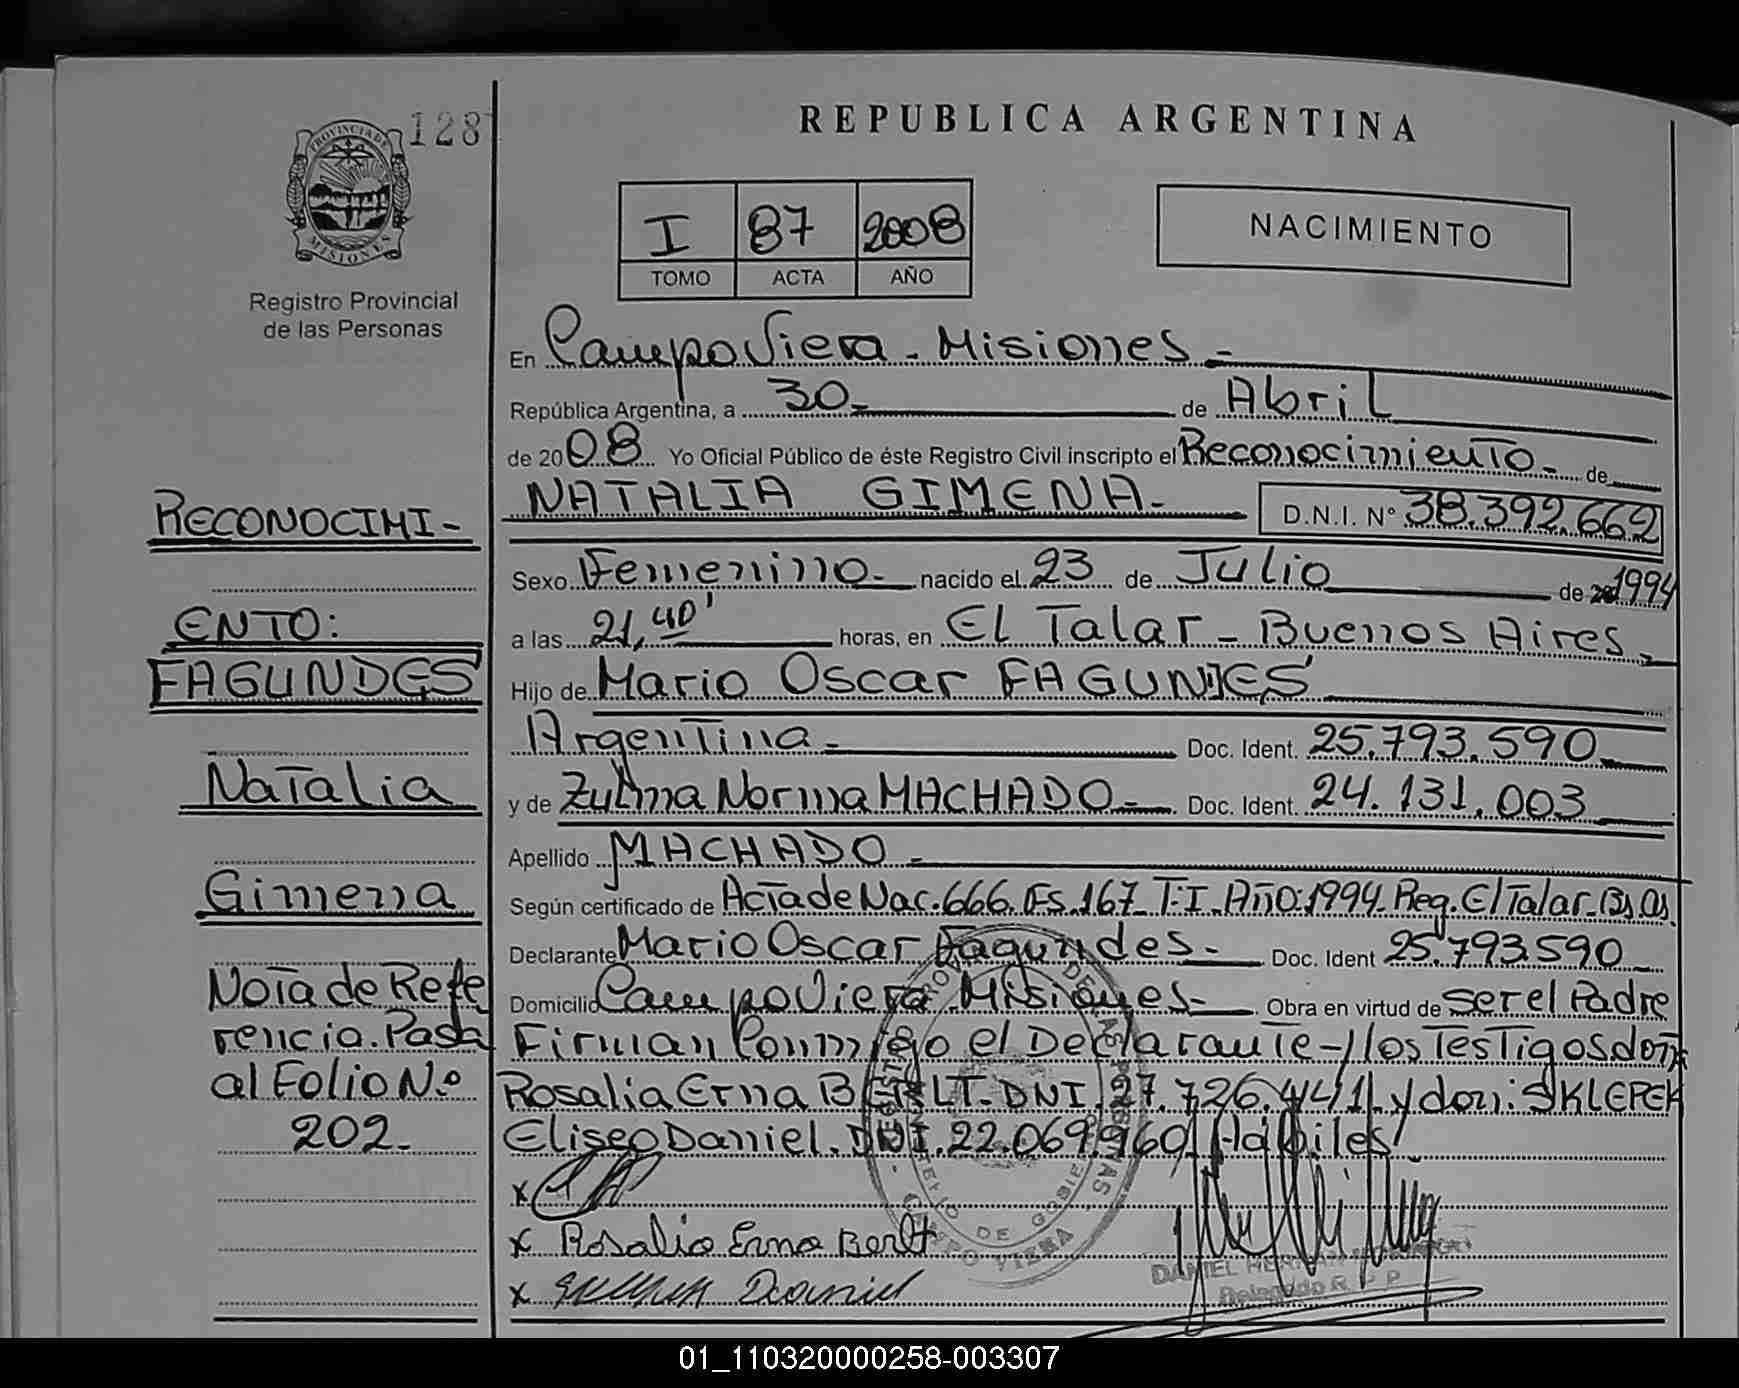 128
REPUBLICA ARGENTINA
PROVINCIA DE MISIONES
I 87 2008
TOMO ACTA AÑO
NACIMIENTO
Registro Provincial
de las Personas
En Campo Viera - Misiones -
República Argentina, a 30 - de Abril
de 2008 Yo Oficial Público de éste Registro Civil inscripto el Reconocimiento - de
NATALIA GIMENA - D.N.I. N° 38.392.662
Sexo Femenino - nacido el 23 de Julio de 1994
a las 21,40' horas, en El Talar - Buenos Aires -
Hijo de Mario Oscar FAGUNDES
Argentina - Doc. Ident. 25.793.590
y de Zulma Norma MACHADO - Doc. Ident. 24.131.003
Apellido MACHADO -
Según certificado de Acta de Nac. 666. Fs. 167 T: I. Año: 1994. Reg. El Talar - Bs. As.
Declarante Mario Oscar Fagundes - Doc. Ident 25.793.590
Domicilio Campo Viera - Misiones - Obra en virtud de ser el Padre
Firman Conmigo el Declarante - y los Testigos doña
Rosalia Erna BERLT - DNI. 27.726.441. y don: SKLEPEK
Eliseo Daniel. DNI. 22.069.960 Habiles
x
x Rosalia Erna Berlt
x Daniel
RECONOCIMI-
ENTO:
FAGUNDES
Natalia
Gimena
Nota de Refe
rencia. Pasa
al Folio N.º
202.
CAMPO VIERA
DANIEL
Delegado R. P. P.
01_110320000258-003307